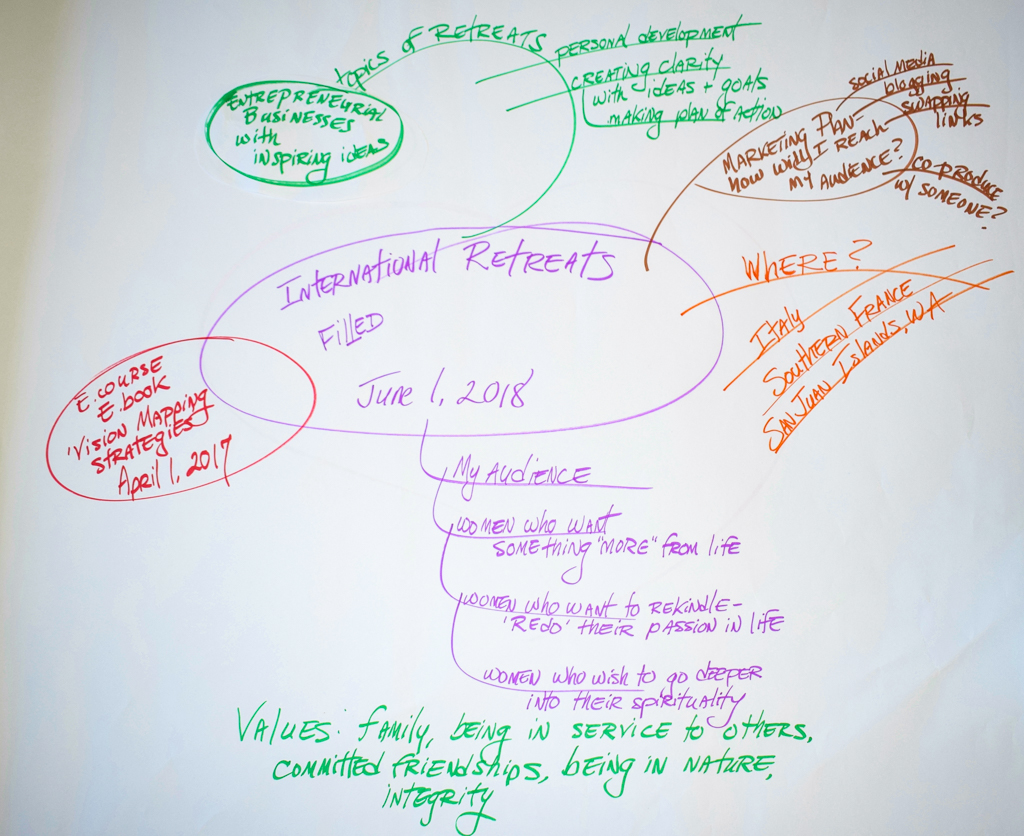 topics of RETREATS
ENTREPRENEURIAL
BUSINESSES
with
inspiring ideas
PERSONAL development
CREATING CLARITY
with IDEAS + GOALS
making plan of ACTION
MARKETING PLAN-
how will I REACH
MY AUDIENCE?
SOCIAL MEDIA
blogging
SWAPPING
links
CO PRODUCE
w/ SOMEONE?
INTERNATIONAL RETREATS
FILLED
June 1, 2018
WHERE?
Italy
SOUTHERN FRANCE
SAN JUAN ISLANDS, WA
E.COURSE
E.book
'Vision Mapping
STRATEGIES
April 1, 2017
My AUDIENCE
WOMEN who WANT
SOMEthING "MORE" FROM life
WOMEN who WANT to REKINDLE-
'REDO' thEIR PASSION IN LIFE
WOMEN who wish to go dEEPER
into thEIR spirituality
VALUES: FAMILY, BEING IN SERVICE to OTHERS,
COMMITTED FRIENDSHIPS, BEING IN NATURE,
INTEGRITY